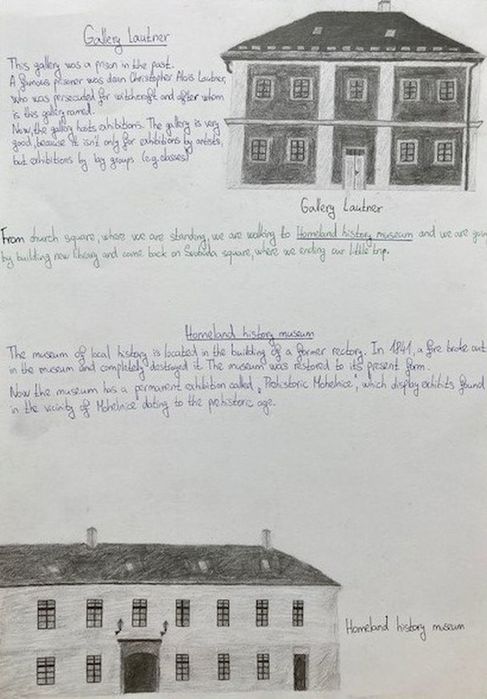 Gallery Lautner
This gallery was a prison in the past.
A famous prisoner was dean Christopher Alois Lautner,
who was persecuted for witchcraft and after whom
is this gallery named.
Now, the gallery hosts exhibitions. The gallery is very
good, because it isn't only for exhibitions by artists,
but exhibitions by log groups (e.g. classes)
Gallery Lautner
From church square, where we are standing, we are walking to Homeland history museum and we are going
by building new library and come back on Svoboda square, where we ending our little trip.
Homeland history museum
The museum of local history is located in the building of a former rectory. In 1841, a fire broke out
in the museum and completely destroyed it. The museum was restored to its present form.
Now the museum has a permanent exhibition called „Prohistoric Mohelnice", which display exhibits found
in the vicinity of Mohelnice dating to the prehistoric age.
Homeland history museum